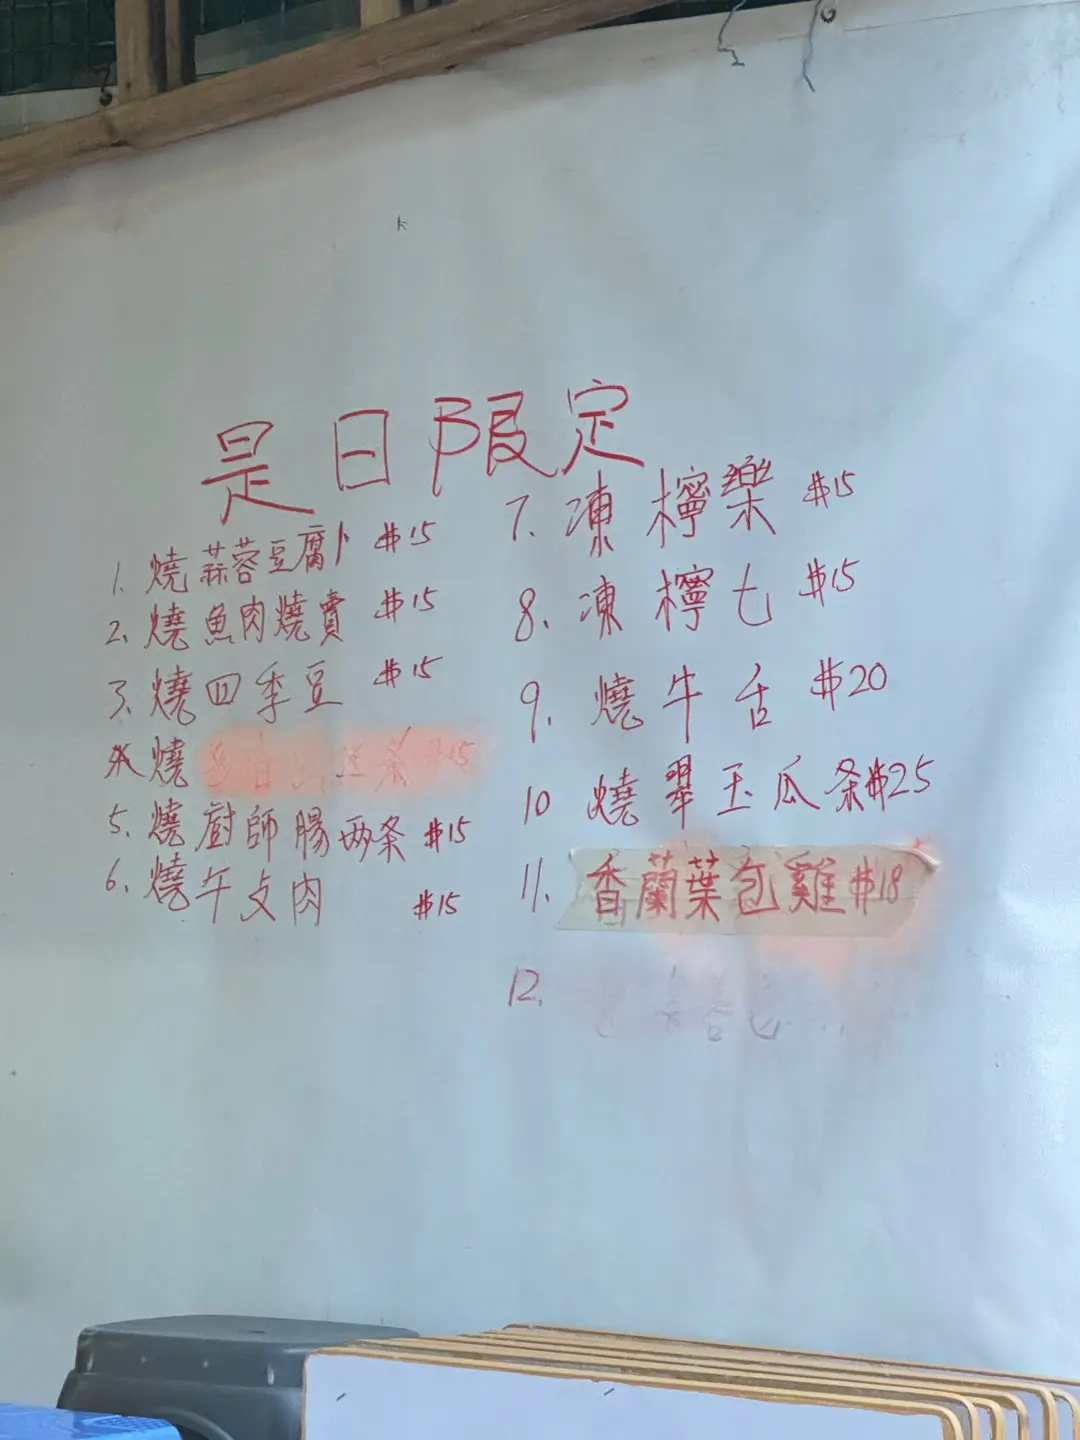 是日限定
1. 燒蒜蓉豆腐卜 $15
2. 燒魚肉燒賣 $15
3. 燒四季豆 $15
燒 $15
5. 燒廚師腸兩条 $15
6. 燒午攴肉 $15
7. 凍檸樂 $15
8. 凍檸七 $15
9. 燒牛舌 $20
10 燒翠玉瓜条$25
11. 香蘭葉包雞$18
12.